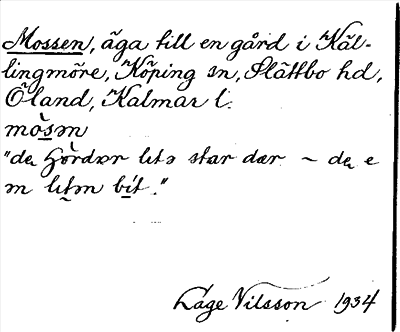 Mossen, äga till en gård i Käl-
lingmöre, Köping sn, Slättbo hd,
Öland, Kalmar l.
mòsən
"de hördər litə star dær - de e
ən litən bit."
Låge Nilsson 1934